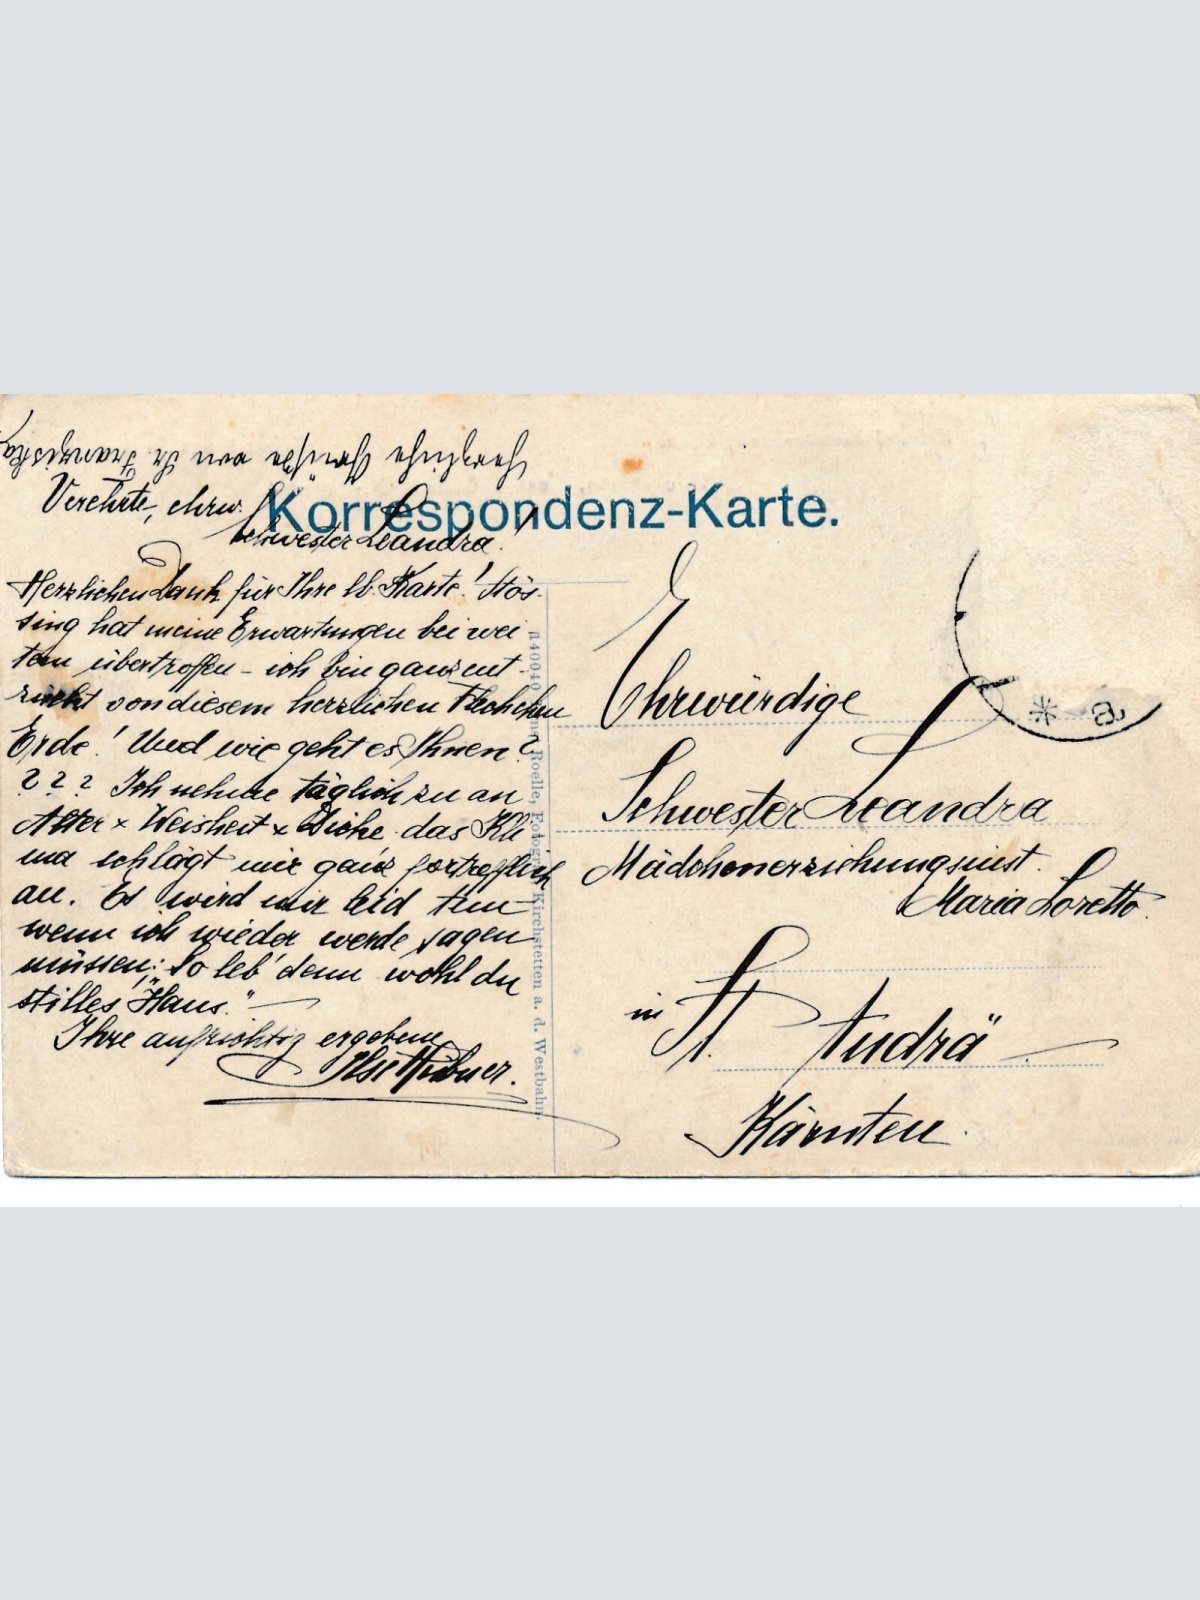 Herzliche Grüße von Sr. Franziska
Korrespondenz-Karte.
Verehrte, ehrw.
Schwester Leandra!
Herzlichen Dank für Ihre lb. Karte! Stös-
sing hat meine Erwartungen bei wei-
tem übertroffen – ich bin ganz ent-
zückt von diesem herrlichen Fleckchen
Erde! Und wie geht es Ihnen?
? ? ? Ich nehme täglich zu an
Alter x Weisheit x Dicke das Kli
ma schlägt mir ganz fortrefflich
an. Es wird mir leid tun
wenn ich wieder werde sagen
müssen; „So leb' denn wohl du
stilles Haus." –
Ihre aufrichtig ergebene
Ilse Hübner.
Roelle, Fotograf, Kirchstetten a. d. Westbahn.
Ehrwürdige
Schwester Leandra
Mädchenerziehungsinst.
Maria Loretto.
in St. Andrä
Kärnten.